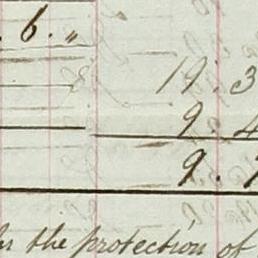 . 6 . "
19 . 3
9 . 4
9 .
the protection of